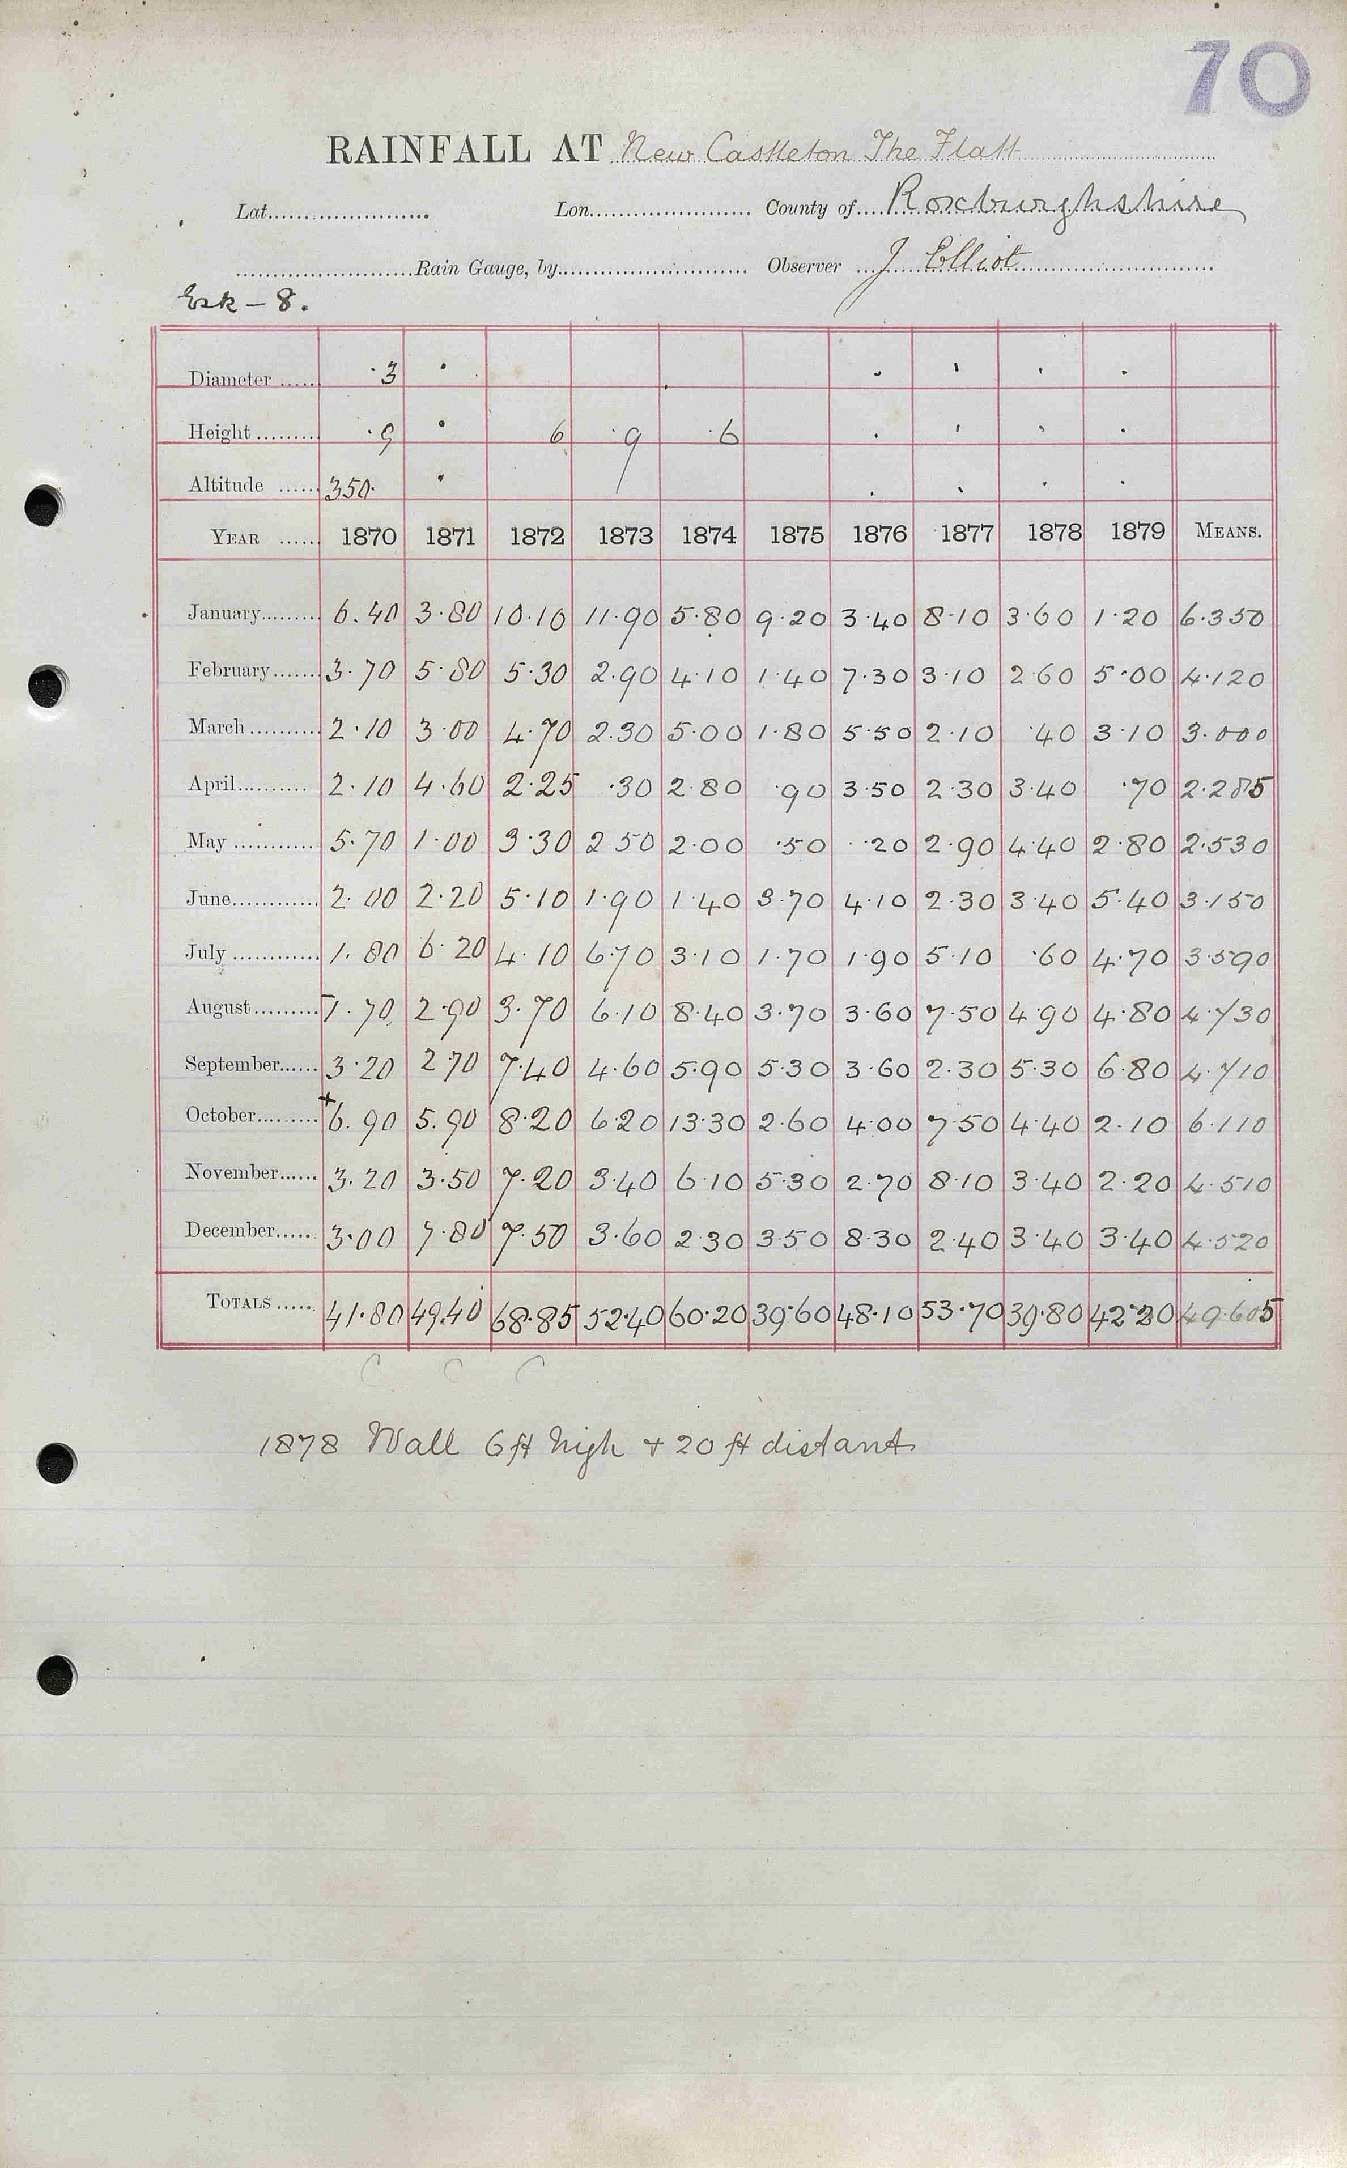 70
RAINFALL AT New Castleton The Flatt
Lat. Lon. County of Roxburghshire
Rain Gauge, by Observer J Elliot
Esk - 8.
Diameter ·3 · · · · ·
Height ·9 · 6 ·9 ·6 · · · ·
Altitude 350· · · · · ·
YEAR 1870 1871 1872 1873 1874 1875 1876 1877 1878 1879 MEANS.
January 6.40 3.80 10.10 11.90 5.80 9.20 3.40 8.10 3.60 1.20 6.350
February 3.70 5.80 5.30 2.90 4.10 1.40 7.30 3.10 2.60 5.00 4.120
March 2.10 3.00 4.70 2.30 5.00 1.80 5.50 2.10 .40 3.10 3.000
April 2.10 4.60 2.25 .30 2.80 .90 3.50 2.30 3.40 .70 2.285
May 5.70 1.00 3.30 2.50 2.00 .50 .20 2.90 4.40 2.80 2.530
June 2.00 2.20 5.10 1.90 1.40 3.70 4.10 2.30 3.40 5.40 3.150
July 1.80 6.20 4.10 6.70 3.10 1.70 1.90 5.10 .60 4.70 3.590
August 1.70 2.90 3.70 6.10 8.40 3.70 3.60 7.50 4.90 4.80 4.730
September 3.20 2.70 7.40 4.60 5.90 5.30 3.60 2.30 5.30 6.80 4.710
October +6.90 5.90 8.20 6.20 13.30 2.60 4.00 7.50 4.40 2.10 6.110
November 3.20 3.50 7.20 3.40 6.10 5.30 2.70 8.10 3.40 2.20 4.510
December 3.00 7.80 7.50 3.60 2.30 3.50 8.30 2.40 3.40 3.40 4.520
TOTALS 41.80 49.40 68.85 52.40 60.20 39.60 48.10 53.70 39.80 42.20 49.605
C C C
1878 Wall 6 ft high + 20 ft distant